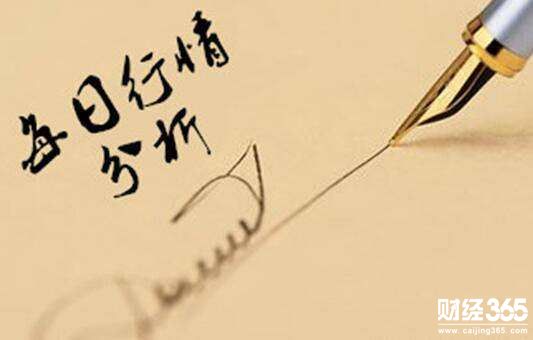 每日行情
分析
财经365
www.caijing365.com